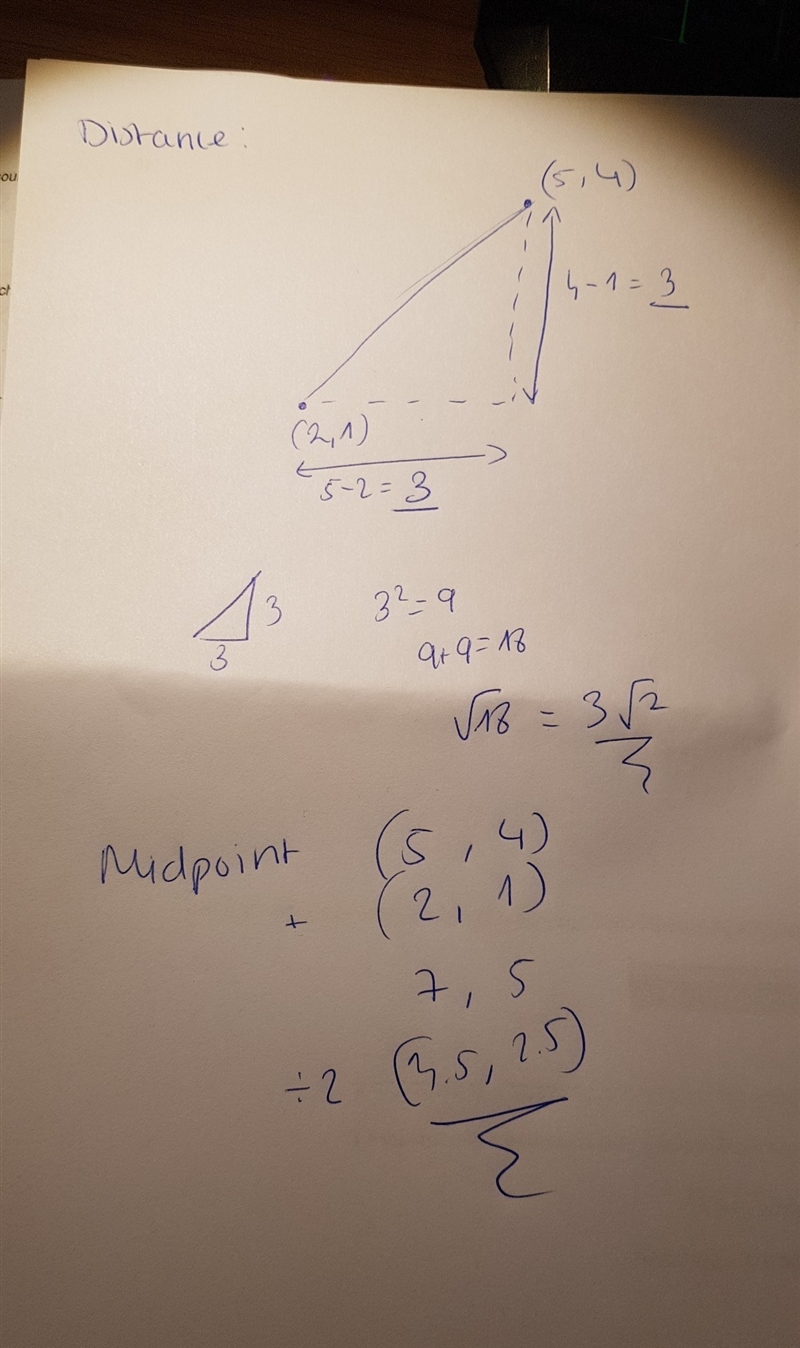 Distance:
(5, 4)
4-1=3
(2,1)
5-2=3
3
3
3²=9
9+9=18
√18 = 3√2
Midpoint (5, 4)
+ (2, 1)
7, 5
÷2 (3.5, 2.5)